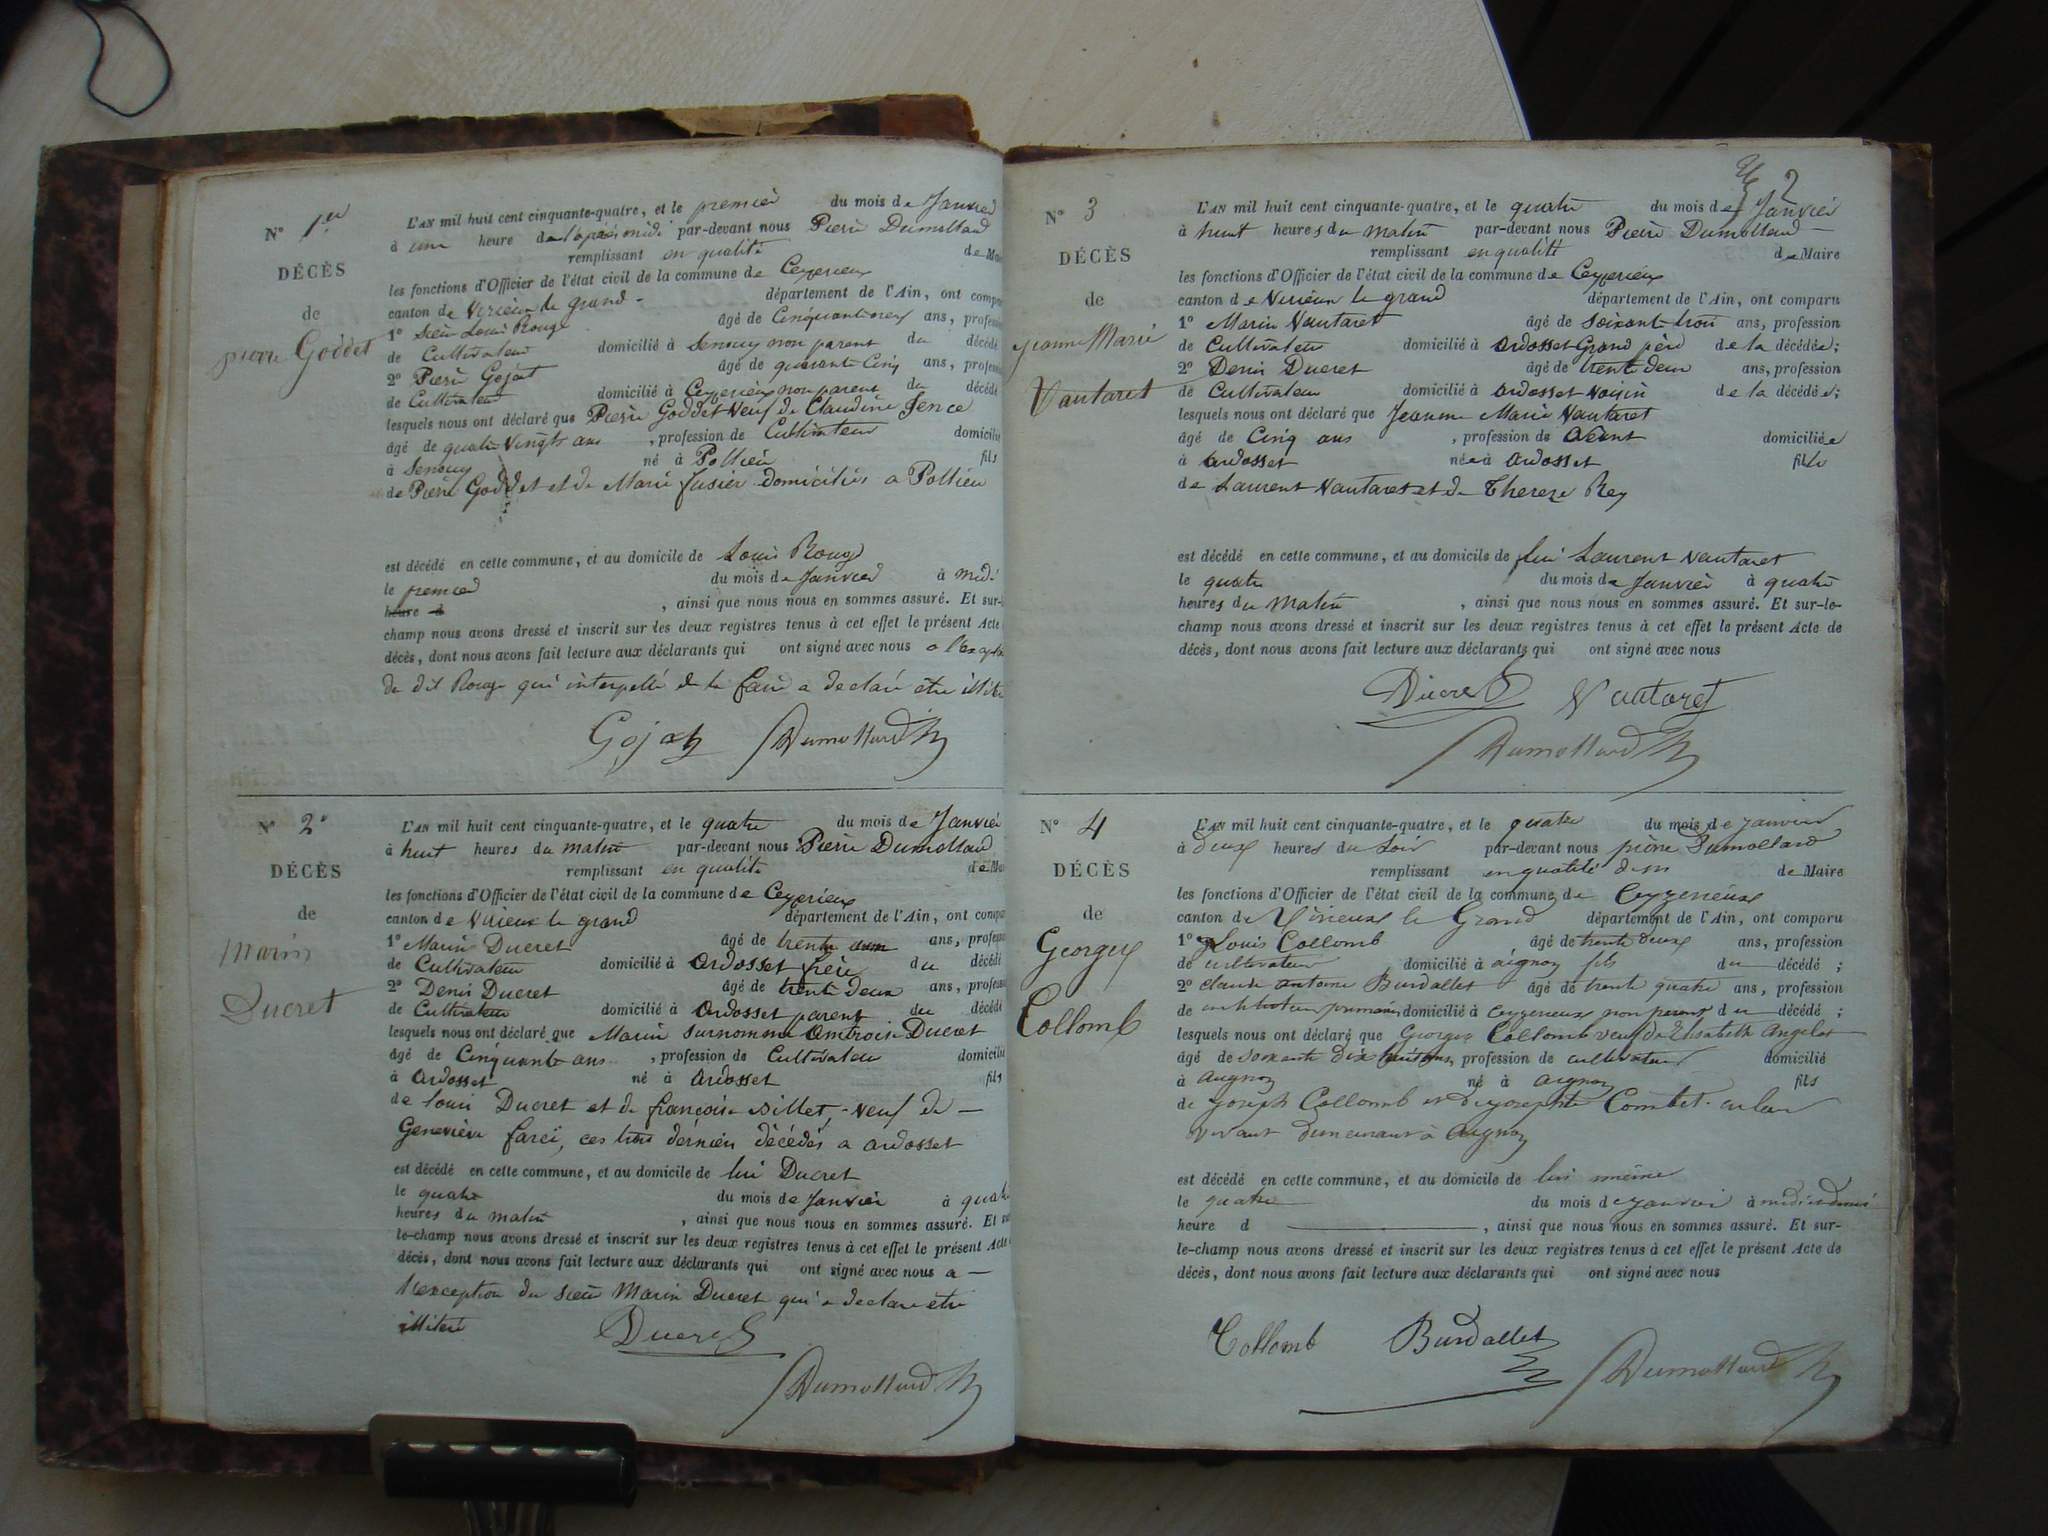 N° 1er
DÉCÈS
de
pierre Goddet
L'AN mil huit cent cinquante-quatre, et le premier du mois de Janvier
à une heure de l'après midi par-devant nous Pierre Dumollard
remplissant en qualité de Mai
les fonctions d'Officier de l'état civil de la commune de Ceyzerieux
canton de Virieux le grand - département de l'Ain, ont compa
1° Sieur Louis Rouge âgé de Cinquante neuf ans, profes
de Cultivateur domicilié à Senouy non parent du décédé
2° Pierre Gojat âgé de quarante Cinq ans, profes
de Cultivateur domicilié à Ceyzerieux non parent du décédé
lesquels nous ont déclaré que Pierre Goddet Veuf de Claudine Jence
âgé de quatre Vingts ans , profession de Cultivateur domicilié
à Senouy né à Pollieu fils
de Pierre Goddet et de Marie fusier domiciliés a Pollieu
est décédé en cette commune, et au domicile de Louis Rouge
le premier du mois de Janvier à midi
heure d , ainsi que nous nous en sommes assuré. Et sur-le-
champ nous avons dressé et inscrit sur les deux registres tenus à cet effet le présent Acte
décès, dont nous avons fait lecture aux déclarants qui ont signé avec nous a l'exception
du dit Rouge qui interpellé de le faire a declaré être illité
Gojat Dumollard M
N° 2e
DÉCÈS
de
Marin
Ducret
L'AN mil huit cent cinquante-quatre, et le quatre du mois de Janvier
à huit heures du matin par-devant nous Pierre Dumollard
remplissant en qualité de Mai
les fonctions d'Officier de l'état civil de la commune de Ceyzerieux
canton de Virieux le grand département de l'Ain, ont compa
1° Marin Ducret âgé de trente ans, profes
de Cultivateur domicilié à Ardosset frère du décédé
2° Denis Ducret âgé de trente deux ans, profes
de Cultivateur domicilié à Ardosset parent du décédé
lesquels nous ont déclaré que Marin surnommé Ambroise Ducret
âgé de Cinquante ans , profession de Cultivateur domicilié
à Ardosset né à Ardosset fils
de louis Ducret et de françoise Billet, - Veuf de -
Geneviève farci, ces trois derniers décédés a ardosset
est décédé en cette commune, et au domicile de lui Ducret
le quatre du mois de Janvier à quatre
heures du matin , ainsi que nous nous en sommes assuré. Et sur
le-champ nous avons dressé et inscrit sur les deux registres tenus à cet effet le présent Acte
décès, dont nous avons fait lecture aux déclarants qui ont signé avec nous a -
l'exception du sieur Marin Ducret qui a declaré etre
illitere
Ducret
Dumollard M
2
N° 3
DÉCÈS
de
Jeanne Marie
Vautaret
L'AN mil huit cent cinquante-quatre, et le quatre du mois de Janvier
à huit heures du matin par-devant nous Pierre Dumollard -
remplissant en qualité de Maire
les fonctions d'Officier de l'état civil de la commune de Ceyzerieux
canton de Virieux le grand département de l'Ain, ont comparu
1° Marin Vautaret âgé de soixante trois ans, profession
de Cultivateur domicilié à Ardosset Grand père de la décédée;
2° Denis Ducret âgé de trente deux ans, profession
de Cultivateur domicilié à Ardosset Voisin de la décédée;
lesquels nous ont déclaré que Jeanne Marie Vautaret
âgé de Cinq ans , profession de Néant domiciliée
à Ardosset née à Ardosset fille
de Laurent Vautaret et de Thereze Rey
est décédé en cette commune, et au domicile de lui Laurent Vautaret
le quatre du mois de Janvier à quatre
heures du matin , ainsi que nous nous en sommes assuré. Et sur-le-
champ nous avons dressé et inscrit sur les deux registres tenus à cet effet le présent Acte de
décès, dont nous avons fait lecture aux déclarants qui ont signé avec nous
Ducret Vautaret
Dumollard M
N° 4
DÉCÈS
de
Georges
Collomb
L'AN mil huit cent cinquante-quatre, et le quatre du mois de janvier
à deux heures du soir par-devant nous pierre Dumollard
remplissant en qualité de Maire
les fonctions d'Officier de l'état civil de la commune de Ceyzerieux
canton de Virieux le Grand département de l'Ain, ont comparu
1° Louis Collomb âgé de trente deux ans, profession
de cultivateur domicilié à aignoz fils du décédé ;
2° claude antoine Burdallet âgé de trente quatre ans, profession
de instituteur primaire domicilié à ceyzerieux non parent du décédé ;
lesquels nous ont déclaré que Georges Collomb veuf de Elisabeth Angelot
âgé de soixante dix huit ans, profession de cultivateur domicilié
à aignoz né à aignoz fils
de joseph Collomb et de josephte Combet. en leur
vivant demeurant à aignoz
est décédé en cette commune, et au domicile de lui même
le quatre du mois de janvier à midi et demi
heure d , ainsi que nous nous en sommes assuré. Et sur-
le-champ nous avons dressé et inscrit sur les deux registres tenus à cet effet le présent Acte de
décès, dont nous avons fait lecture aux déclarants qui ont signé avec nous
Collomb Burdallet Dumollard M